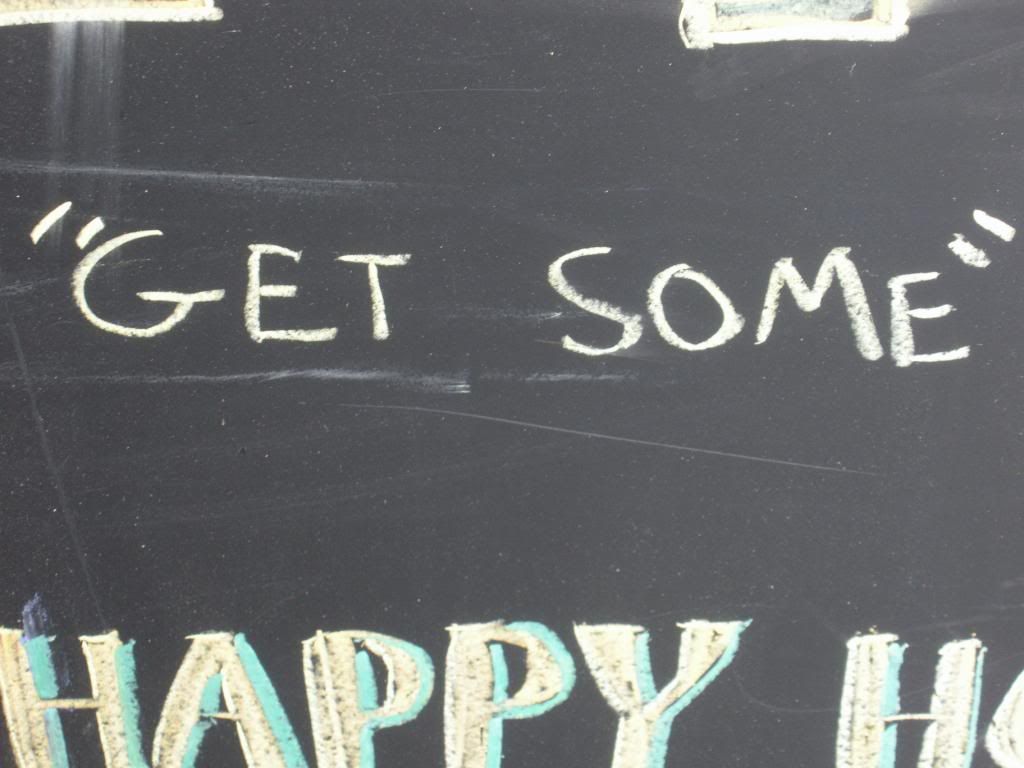 "GET SOME"
HAPPY HO